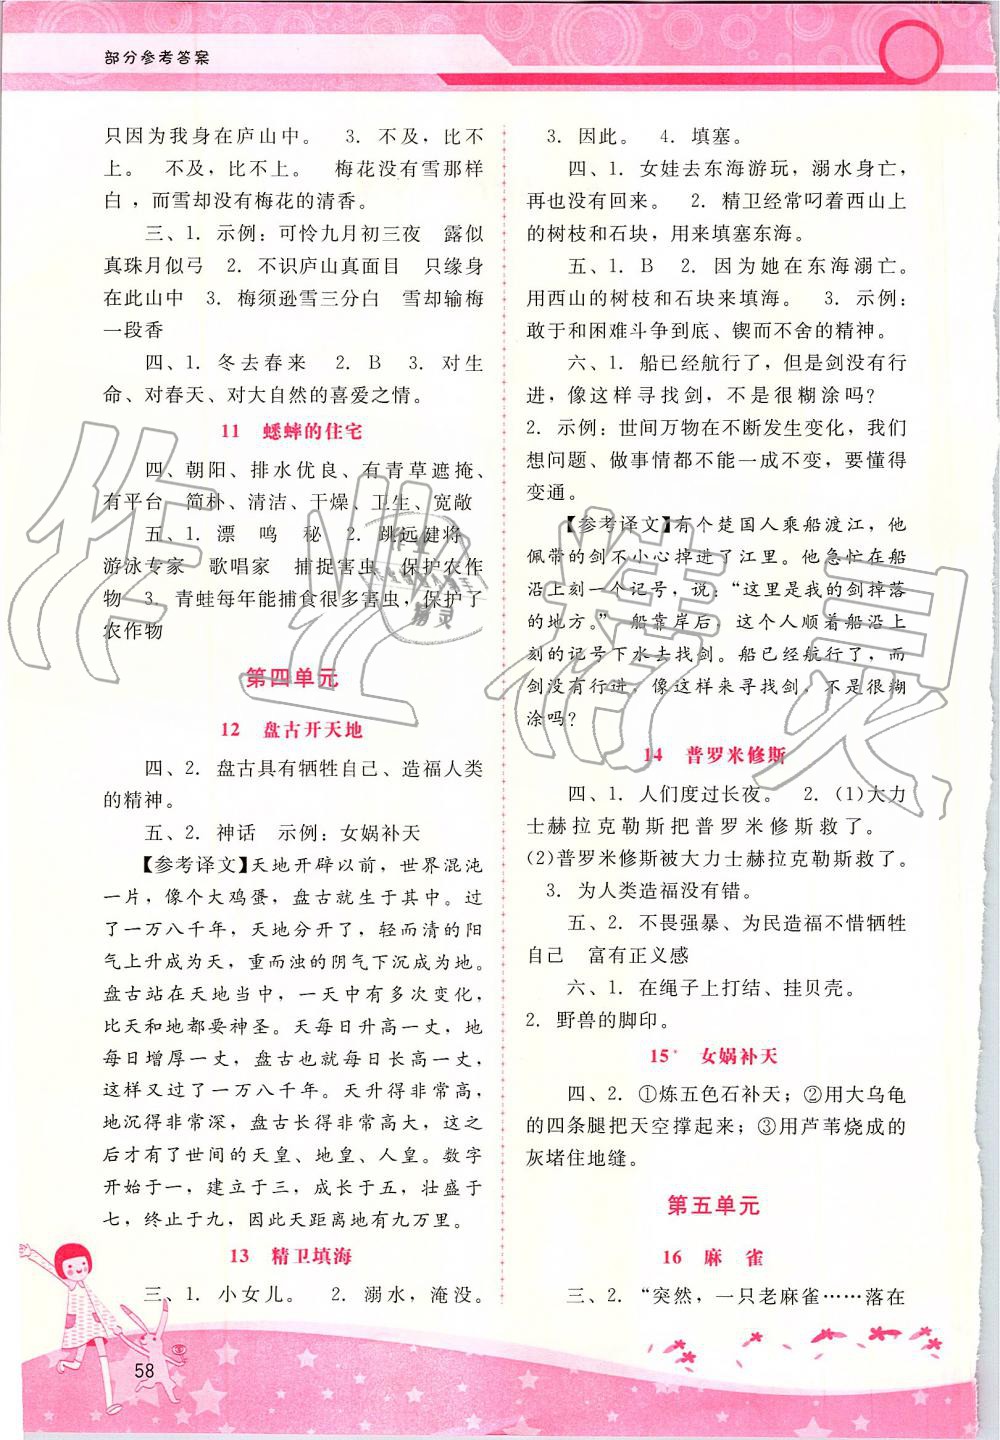 部分参考答案
只因为我身在庐山中。 3. 不及，比不
上。 不及，比不上。 梅花没有雪那样
白，而雪却没有梅花的清香。
三、1. 示例：可怜九月初三夜 露似
真珠月似弓 2. 不识庐山真面目 只缘身
在此山中 3. 梅须逊雪三分白 雪却输梅
一段香
四、1. 冬去春来 2. B 3. 对生
命、对春天、对大自然的喜爱之情。
11 蟋蟀的住宅
四、朝阳、排水优良、有青草遮掩、
有平台 简朴、清洁、干燥、卫生、宽敞
五、1. 漂 鸣 秘 2. 跳远健将
游泳专家 歌唱家 捕捉害虫、保护农作
物 3. 青蛙每年能捕食很多害虫，保护了
农作物
第四单元
12 盘古开天地
四、2. 盘古具有牺牲自己、造福人类
的精神。
五、2. 神话 示例：女娲补天
【参考译文】天地开辟以前，世界混沌
一片，像个大鸡蛋，盘古就生于其中。过
了一万八千年，天地分开了，轻而清的阳
气上升成为天，重而浊的阴气下沉成为地。
盘古站在天地当中，一天中有多次变化，
比天和地都要神圣。天每日升高一丈，地
每日增厚一丈，盘古也每日长高一丈，
这样又过了一万八千年。天升得非常高，
地沉得非常深，盘古长得非常高大，这之
后才有了世间的天皇、地皇、人皇。数字
开始于一，建立于三，成长于五，壮盛于
七，终止于九，因此天距离地有九万里。
13 精卫填海
三、1. 小女儿。 2. 溺水，淹没。
58
3. 因此。 4. 填塞。
四、1. 女娃去东海游玩，溺水身亡，
再也没有回来。 2. 精卫经常叼着西山上
的树枝和石块，用来填塞东海。
五、1. B 2. 因为她在东海溺亡。
用西山的树枝和石块来填海。 3. 示例：
敢于和困难斗争到底、锲而不舍的精神。
六、1. 船已经航行了，但是剑没有行
进，像这样寻找剑，不是很糊涂吗？
2. 示例：世间万物在不断发生变化，我们
想问题、做事情都不能一成不变，要懂得
变通。
【参考译文】有个楚国人乘船渡江，他
佩带的剑不小心掉进了江里。他急忙在船
沿上刻一个记号，说：“这里是我的剑掉落
的地方。” 船靠岸后，这个人顺着船沿上
刻的记号下水去找剑。船已经航行了，而
剑没有行进，像这样来寻找剑，不是很糊
涂吗？
14 普罗米修斯
四、1. 人们度过长夜。 2. (1)大力
士赫拉克勒斯把普罗米修斯救了。
(2)普罗米修斯被大力士赫拉克勒斯救了。
3. 为人类造福没有错。
五、2. 不畏强暴、为民造福不惜牺牲
自己 富有正义感
六、1. 在绳子上打结、挂贝壳。
2. 野兽的脚印。
15* 女娲补天
四、2. ①炼五色石补天；②用大乌龟
的四条腿把天空撑起来；③用芦苇烧成的
灰堵住地缝。
第五单元
16 麻 雀
三、2. “突然，一只老麻雀……落在
作业精灵